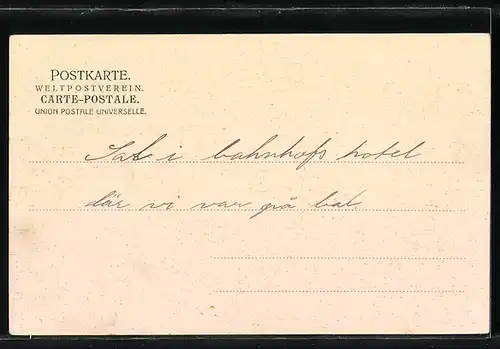 POSTKARTE.
WELTPOSTVEREIN.
CARTE-POSTALE.
UNION POSTALE UNIVERSELLE.
Sal i bahnhofs hotel
där vi var på bal.